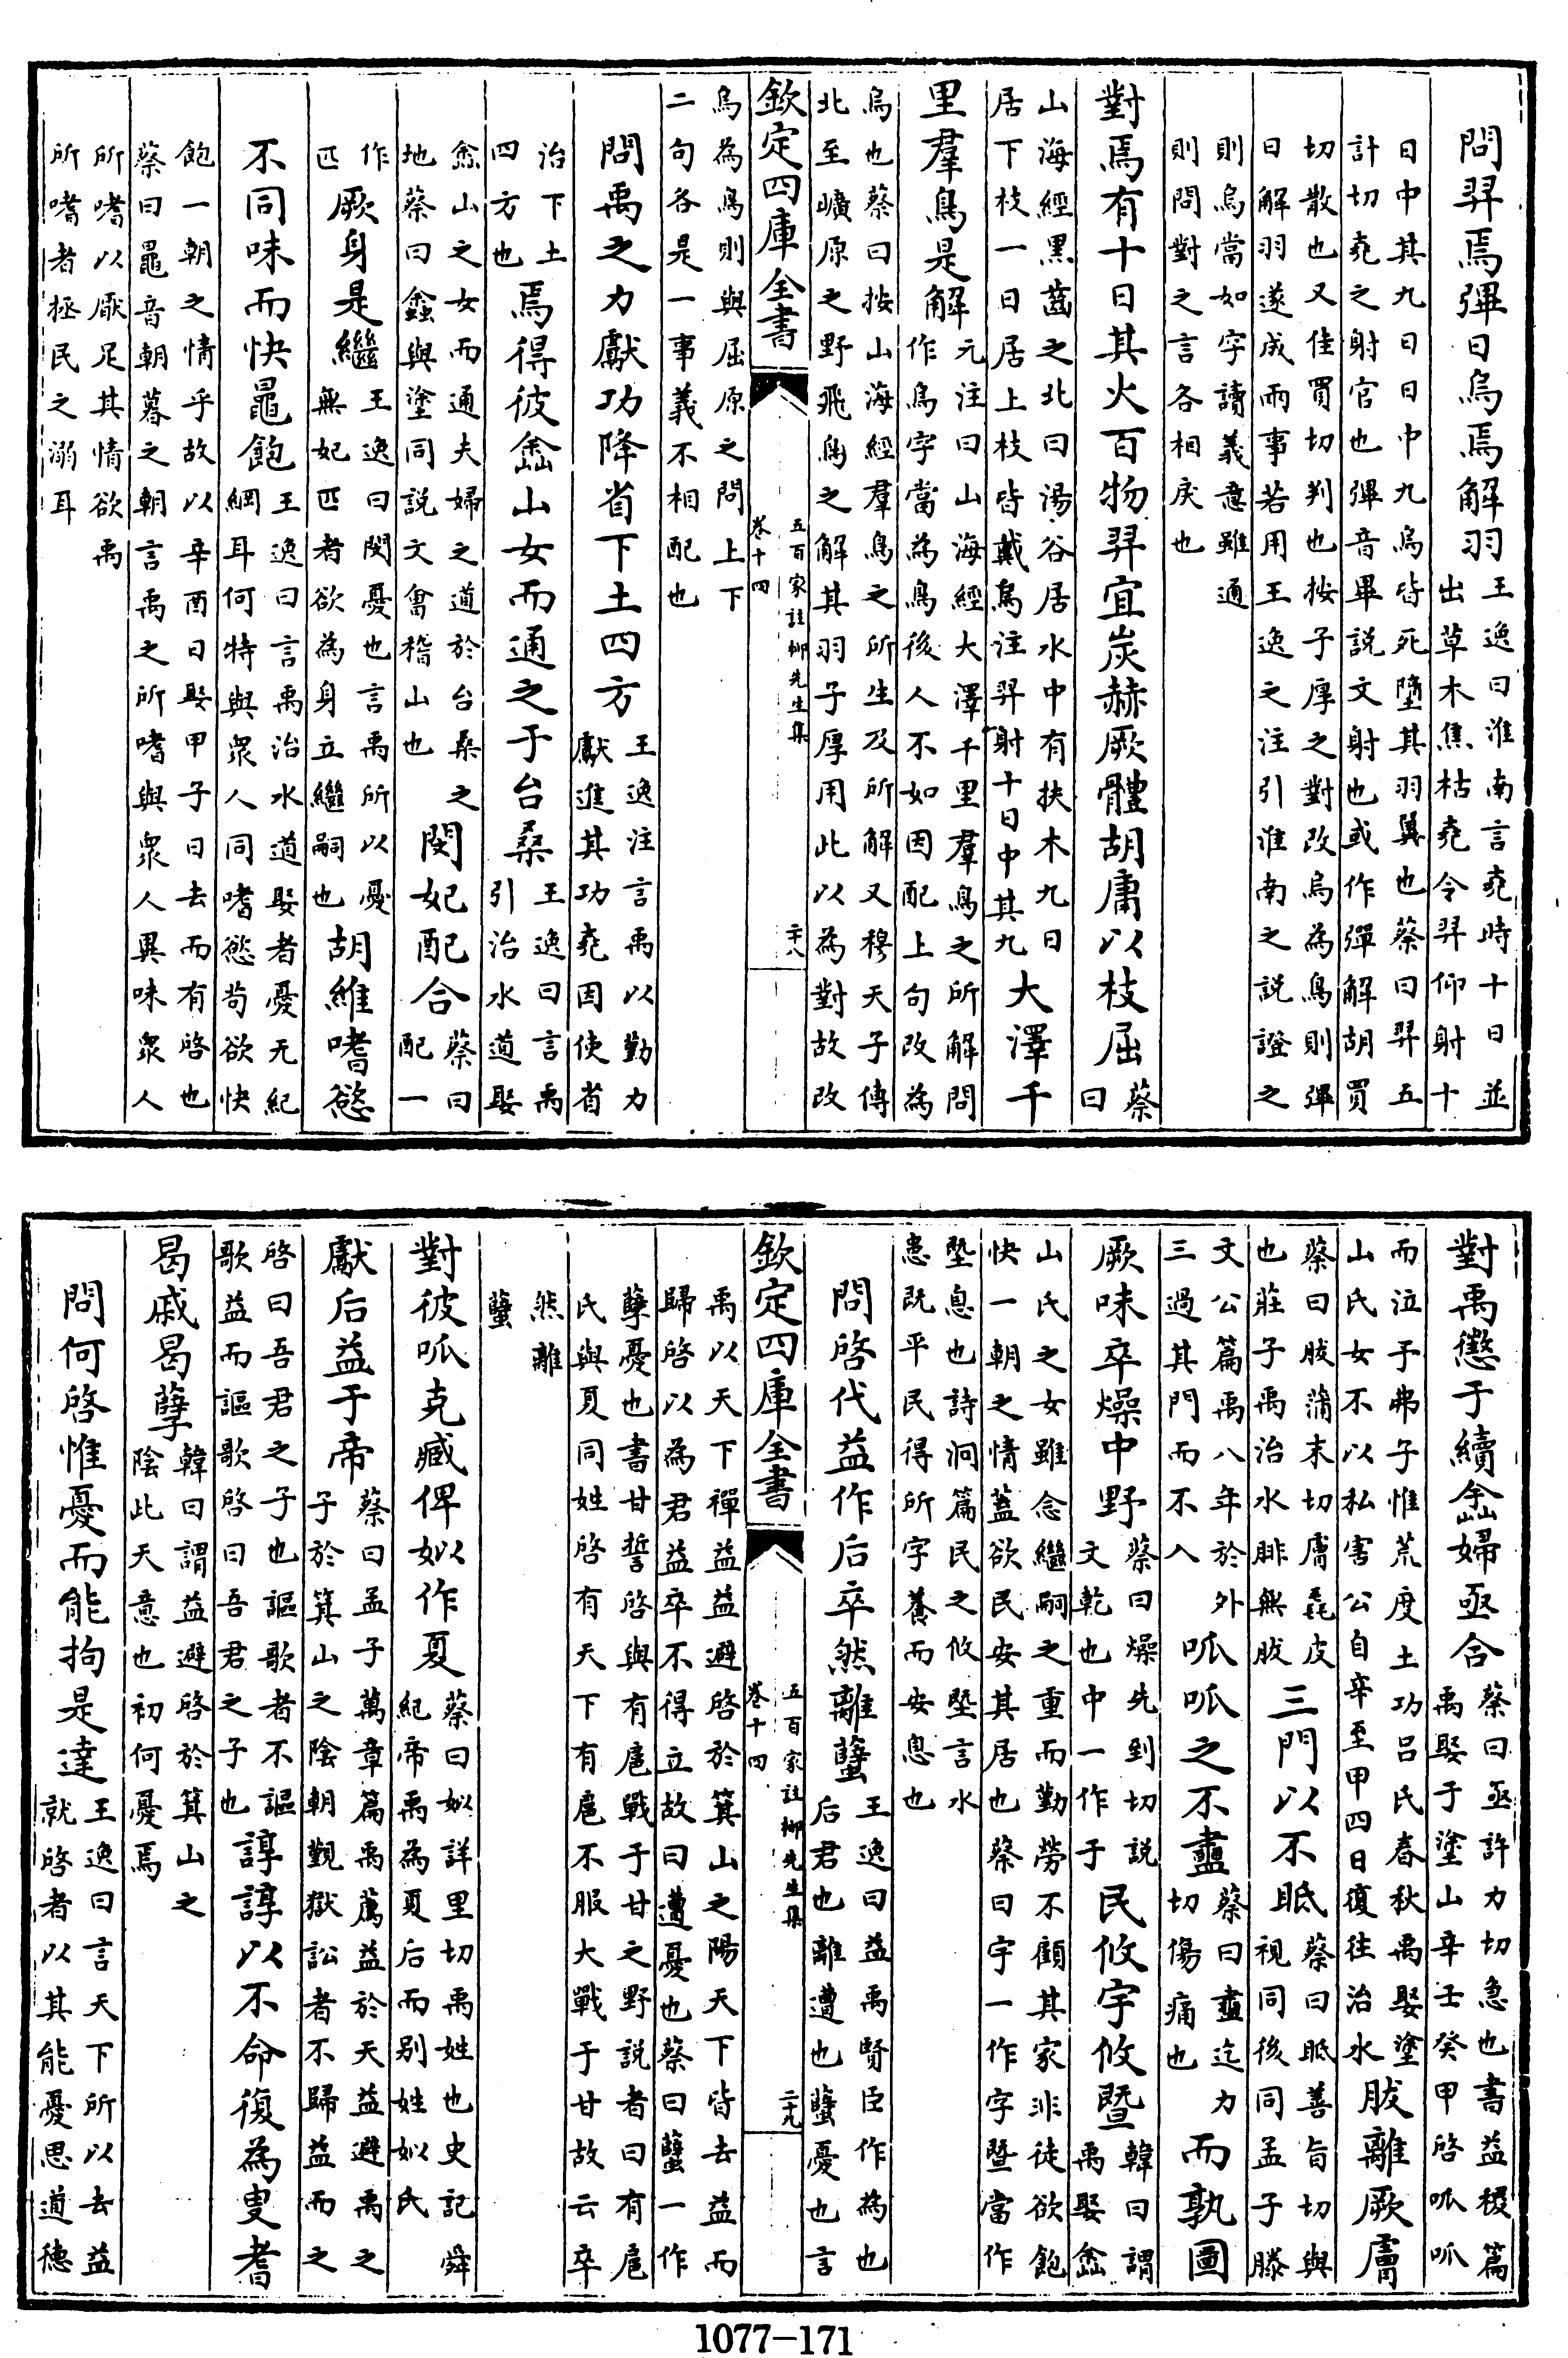 問羿焉彃日烏焉解羽王逸曰淮南言堯時十日並
出草木焦枯堯令羿仰射十
日中其九日日中九烏皆死墮其羽翼也蔡曰羿五
計切堯之射官也彃音畢説文射也或作彈解胡買
切散也又佳買切判也按子厚之對改烏為鳥則彃
日解羽遂成兩事若用王逸之注引淮南之説證之
則烏當如字讀義意雖通
則問對之言各相戾也
對焉有十日其火百物羿宜炭赫厥體胡庸以枝屈蔡
曰
山海經黑齒之北曰湯谷居水中有扶木九日
居下枝一日居上枝皆戴烏注羿射十日中其九大澤千
里羣鳥是解元注曰山海經大澤千里羣鳥之所解問
作烏字當為鳥後人不如因配上句改為
烏也蔡曰按山海經羣鳥之所生及所解又穆天子傳
北至曠原之野飛鳥之解其羽子厚用此以為對故改
欽定四庫全書
五百家註柳先生集
卷十四
二十八
烏為鳥則與屈原之問上下
二句各是一事義不相配也
問禹之力獻功降省下土四方王逸注言禹以勤力
獻進其功堯因使省
治下土
四方也焉得彼嵞山女而通之于台桑王逸曰言禹
引治水道娶
嵞山之女而通夫婦之道於台桑之
地蔡曰嵞與塗同説文會稽山也閔妃配合蔡曰
配一
作
匹厥身是繼王逸曰閔憂也言禹所以憂
無妃匹者欲為身立繼嗣也胡維嗜慾
不同味而快鼂飽王逸曰言禹治水道娶者憂无紀
綱耳何特與眾人同嗜慾苟欲快
飽一朝之情乎故以辛酉日娶甲子日去而有啓也
蔡曰鼂音朝暮之朝言禹之所嗜與眾人異味眾人
所嗜以厭足其情欲禹
所嗜者拯民之溺耳
對禹懲于續嵞婦亟合蔡曰亟許力切急也書益稷篇
禹娶于塗山辛壬癸甲啓呱呱
而泣予弗子惟荒度土功吕氏春秋禹娶塗
山氏女不以私害公自辛至甲四日復往治水胈離厥膚
蔡曰胈蒲末切膚毳皮
也莊子禹治水腓無胈三門以不眡蔡曰眡善旨切與
視同後同孟子滕
文公篇禹八年於外
三過其門而不入呱呱之不衋蔡曰衋迄力
切傷痛也而孰圖
厥味卒燥中野蔡曰燥先到切説
文乾也中一作于民攸宇攸曁韓曰謂
禹娶嵞
山氏之女雖念繼嗣之重而勤勞不顧其家非徒欲飽
快一朝之情蓋欲民安其居也蔡曰宇一作字曁當作
墍息也詩泂篇民之攸墍言水
患既平民得所字養而安息也
問啓代益作后卒然離蠥王逸曰益禹賢臣作為也
后君也離遭也蠥憂也言
欽定四庫全書
五百家註柳先生集
卷十四
二十九
禹以天下禪益益避啓於箕山之陽天下皆去益而
歸啓以為君益卒不得立故曰遭憂也蔡曰蠥一作
孽憂也書甘誓啓與有扈戰于甘之野説者曰有扈
氏與夏同姓啓有天下有扈不服大戰于甘故云卒
然離
蠥
對彼呱克臧俾姒作夏蔡曰姒詳里切禹姓也史記舜
紀帝禹為夏后而别姓姒氏
獻后益于帝蔡曰孟子萬章篇禹薦益於天益避禹之
子於箕山之陰朝覲獄訟者不歸益而之
啓曰吾君之子也謳歌者不謳
歌益而謳歌啓曰吾君之子也諄諄以不命復為叟耆
曷戚曷孽韓曰謂益避啓於箕山之
陰此天意也初何憂焉
問何啓惟憂而能拘是達王逸曰言天下所以去益
就啓者以其能憂思道德
1077-171